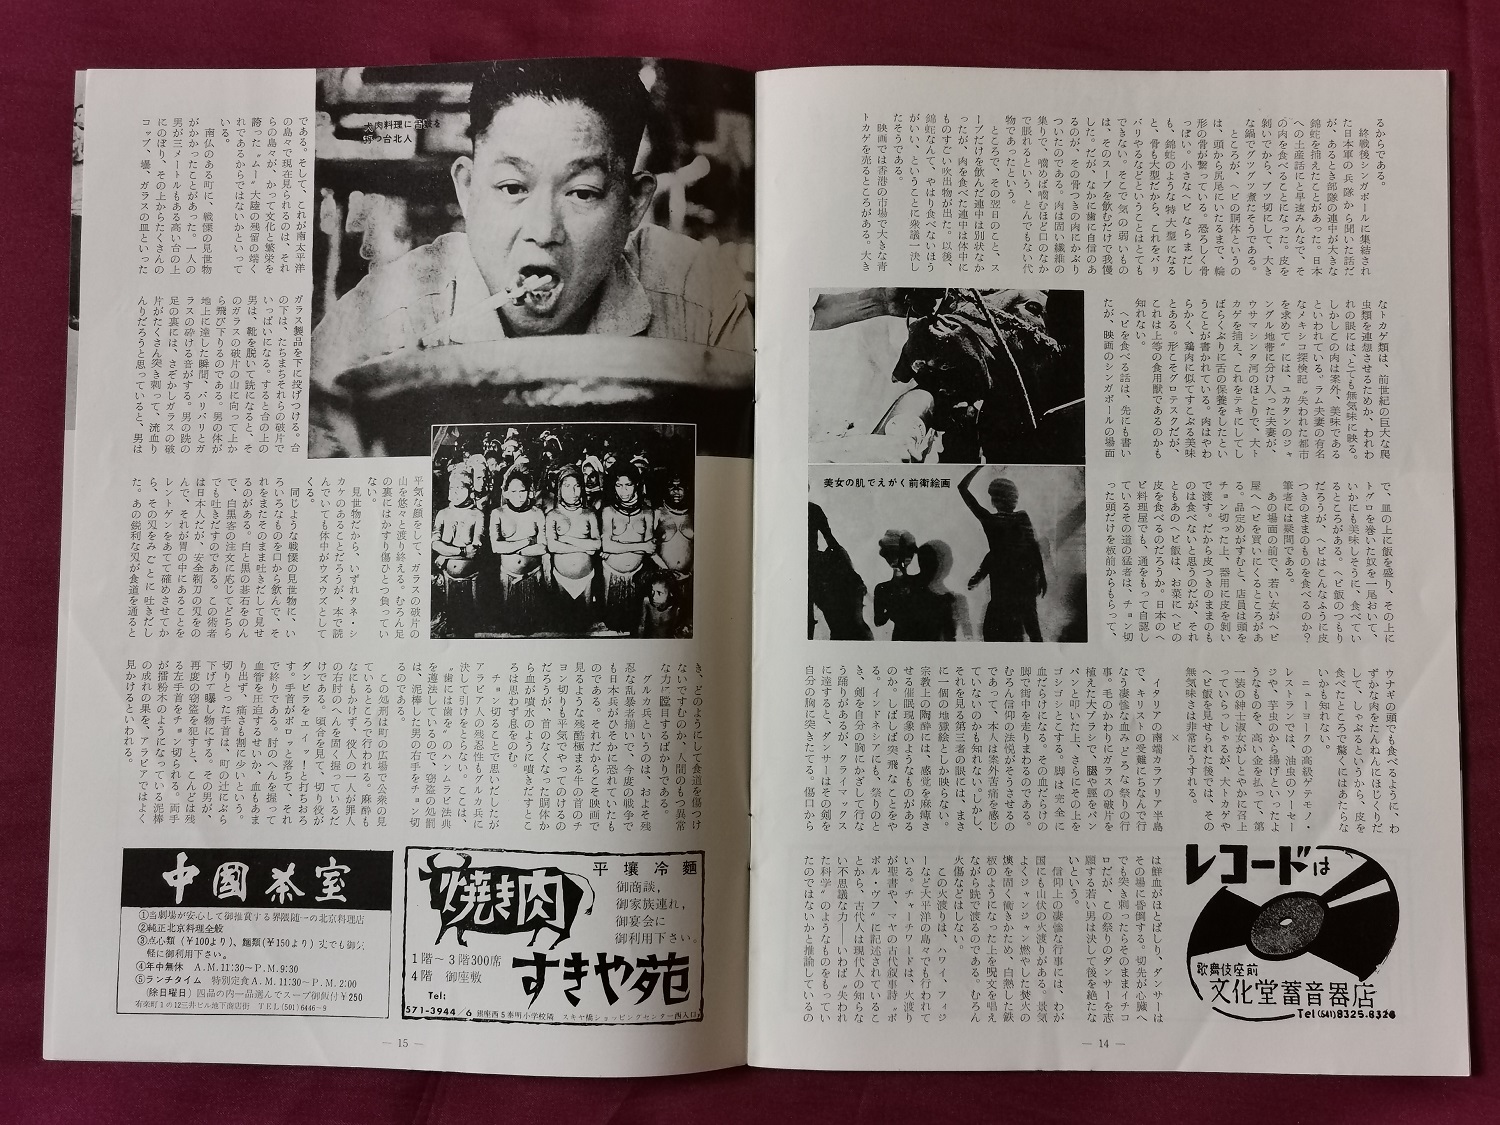 るからである。
終戦後シンガポールに集結され
た日本軍の兵隊から聞いた話だ
が、あるとき部隊の連中が大きな
錦蛇を捕えたことがあった。日本
への土産話にと早速みんなで、そ
の肉を食べることになった。皮を
剝いでから、ブツ切にして、大き
な鍋でグツグツ煮だそうである。
ところが、ヘビの胴体というの
は、頭から尻尾にいたるまで、輪
形の骨が繋っている。恐ろしく骨
っぽい。小さなヘビならまだし
も、錦蛇のような特大型になる
と、骨も大型だから、これをバリ
バリやるなどということはとても
できない。そこで気の弱いもの
は、そのスープを飲むだけで我慢
した。だが、なかに歯に自信のあ
るのが、その骨つきの肉にかぶり
ついたのである。肉は固い繊維の
集りで、嚙めば嚙むほど口のなか
で脹れるという、とんでもない代
物であったという。
ところで、その翌日のこと、ス
ープだけを飲んだ連中は別状なか
ったが、肉を食べた連中は体中に
ものすごい吹出物が出た。以後、
錦蛇なんて、やはり食べないほう
がいい、ということに衆議一決し
たそうである。
映画では香港の市場で大きな青
トカゲを売るところがある。大き
なトカゲ類は、前世紀の巨大な爬
虫類を連想させるためか、われわ
れの眼には、とても無気味に映る。
しかしこの肉は案外、美味である
といわれている。ラム夫妻の有名
なメキシコ探検記〝失われた都市
を求めて〟には、ユカタンのジャ
ングル地帯に分け入った夫妻が、
ウサマシンタ河のほとりで、大ト
カゲを捕え、これをテキにしてし
ばらくぶりに舌の保養をしたとい
うことが書かれている。肉はやわ
らかく、鶏肉に似てすこぶる美味
とある。形こそグロテスクだが、
これは上等の食用獣であるのかも
知れない。
ヘビを食べる話は、先にも書い
たが、映画のシンガポールの場面
で、皿の上に飯を盛り、その上に
トグロを巻いた奴を一尾おいて、
いかにも美味しそうに、食べてい
るところがある。ヘビ飯のつもり
だろうが、ヘビはこんなふうに皮
つきのままのものを食べるのか?
筆者には疑問である。
あの場面の前で、若い女がヘビ
屋へヘビを買いにくるところがあ
る。品定めがすむと、店員は頭を
チョン切った上、器用に皮を剝い
で渡す。だから皮つきのままのも
のは食べないと思うのだが、それ
ともあのヘビ飯は、お菜にヘビの
皮を食べるのだろうか。日本のヘ
ビ料理屋でも、通をもって自認し
ているその道の猛者は、チョン切
った頭だけを板前からもらって、
ウナギの頭でも食べるように、わ
ずかな肉をたんねんにほじくりだ
して、しゃぶるというから、皮を
食べたところで驚くにはあたらな
いかも知れない。
ニューヨークの高級ゲテモノ・
レストランでは、油虫のソーセー
ジや、芋虫のから揚げといったよ
うなものを、高い金を払って、第
一装の紳士淑女がしとやかに召上
っていらっしゃるが、大トカゲや
ヘビ飯を見せられた後では、その
無気味さは非常にうすれる。
×
イタリアの南端カラブリア半島
で、キリストの受難にちなんで行
なう凄惨な血みどろな祭りの行
事。毛のかわりにガラスの破片を
植えた大ブラシで、腿や脛をパン
パンと叩いた上、さらにその上を
ゴシゴシとこする。脚は完全に
血だらけになる。その血だらけの
脚で街中を走りまわるのである。
むろん信仰の法悦がそうさせるの
であって、本人は案外苦痛を感じ
ていないのかも知れない。しかし、
それを見る第三者の眼には、まさ
に一個の地獄絵としか映らない。
宗教上の陶酔には、感覚を麻痺さ
せる催眠現象のようなものがある
のか。しばしば突飛なことをや
る。インドネシアにも、祭りのと
き、剣を自分の胸にかざして行な
う踊りがあるが、クライマックス
に達すると、ダンサーはその剣を
自分の胸に突きたてる。傷口から
は鮮血がほとばしり、ダンサーは
その場に昏倒する。切先が心臓へ
でも突き刺ったらそのままイチコ
ロだが、この祭りのダンサーを志
願する若い男は決して後を絶たな
いという。
信仰上の凄惨な行事には、わが
国にも山伏の火渡りがある。景気
よくジャンジャン燃やした焚火の
燠を固く衝きかため、白熱した鉄
板のようになった上を呪文を唱え
ながら跣で渡るのである。むろん
火傷などはしない。
この火渡りは、ハワイ、フィジ
ーなど太平洋の島々でも行われて
いる。チャーチワードは、火渡り
が聖書や、マヤの古代叙事詩〝ポ
ポル・ヴフ〟に記述されているこ
とから、古代人は現代人の知らな
い不思議な力――いわば〝失われ
た科学〟のようなものをもってい
たのではないかと推論している
美女の肌でえがく前衛絵画
レコードは
歌舞伎座前
文化堂蓄音器店
Tel(541)8325.8326
— 14 —
である。そして、これが南太平洋
の島々で現在見られるのは、それ
らの島々が、かつて文化と繁栄を
誇った〝ムー〟大陸の残留の端く
れであるからではないかといって
いる。
南仏のある町に、戦慄の見世物
がかかったことがあった。一人の
男が三メートルもある高い台の上
にのぼり、その上からたくさんの
コップ、壜、ガラスの皿といった
ガラス製品を下に投げつける。台
の下は、たちまちそれらの破片で
いっぱいになる。すると台の上の
男は、靴を脱いで跣になると、そ
のガラスの破片の山に向って上か
ら飛び下りるのである。男の体が
地上に達した瞬間、バリバリとガ
ラスの砕ける音がする。男の跣の
足の裏には、さぞかしガラスの破
片がたくさん突き刺って、流血り
んりだろうと思っていると、男は
平気な顔をして、ガラスの破片の
山を悠々と渡り終える。むろん足
の裏にはかすり傷ひとつ負ってい
ない。
見世物だから、いずれタネ・シ
カケのあることだろうが、本で読
んでいても体中がウズウズとして
くる。
同じような戦慄の見世物に、い
ろいろなものを口から飲んで、そ
れをまたそのまま吐きだして見せ
るのがある。白と黒の碁石をのん
で、白黒客の注文に応じてどちら
でも吐きだすのである。この術者
は日本人だが、安全剃刀の刃をの
んで、それが胃の中にあることを
レントゲンをあてて確めさせてか
ら、その刃をみごとに吐きだし
た。あの鋭利な刃が食道を通ると
き、どのようにして食道を傷つけ
ないですむのか、人間のもつ異常
な力に瞠目するばかりである。
グルカ兵というのは、およそ残
忍な乱暴者揃いで、今度の戦争で
も日本兵がひそかに恐れていたも
のである。それだからこそ映画で
見るような残酷極まる牛の首のチ
ョン切りも平気でやってのけるの
だろうが、首のなくなった胴体か
ら血が噴水のように噴きだすとこ
ろは思わず息をのむ。
チョン切ることで思いだしたが
アラビア人の残忍性もグルカ兵に
決して引けをとらない。ここは、
〝歯には歯を〟のハンムラビ法典
を遵法しているので、窃盗の処罰
は、泥棒した男の右手をチョン切
るのである。
この処刑は町の広場で公衆の見
ているところで行われる。麻酔も
なにもかけず、役人の一人が罪人
の右肘のへんを固く握っているだ
けである。頃合を見て、切り役が
ダンビラをエイッ!と打ちおろ
す。手首がポロッと落ちて、それ
で終りである。肘のへんを握って
血管を圧迫するせいか、血もあま
り出ず、痛さも割に少いという。
切りとった手首は、町の辻にぶら
下げて曝し物にする。その男が、
再度の窃盗を犯すと、こんどは残
る左手首をチョン切られる。両手
が擂粉木のようになっている泥棒
の成れの果を、アラビアではよく
見かけるといわれる。
犬肉料理に舌鼓を
打つ台北人
平壤冷麵
燒き肉
御商談,
御家族連れ,
御宴会に
御利用下さい。
1階~3階300席
4階 御座敷
すきや苑
Tel:
571-3944/6 銀座西5泰明小学校隣 スキヤ橋ショッピングセンター西入口
中國茶室
①当劇場が安心して御推賞する界隈随一の北京料理店
②純正北京料理全般
③点心類(¥100より)、麺類(¥150より)
軽に御利用下さい。
④年中無休 A.M.11:30~P.M.9:30
⑤ランチタイム 特別定食A.M.11:30~P.M.2:00
(除日曜日) 四品の内一品選んでスープ御飯付¥250
有楽町1の12三井ビル地下商店街 TEL(501)6446~9
— 15 —